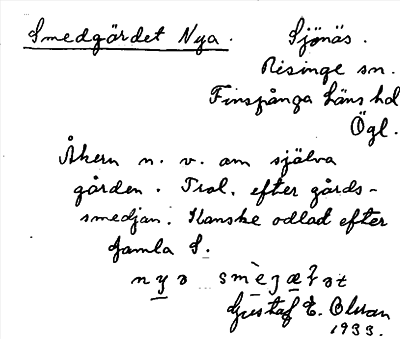 Smedgärdet Nya. Sjönäs.
Risinge sn.
Finspånga läns hd
Ögl.
Åkern n. v. om själva
gården. Trol. efter gårds-
smedjan. Kanske odlad efter
Gamla S.
nyə
Gustaf E. Olsson
1933.